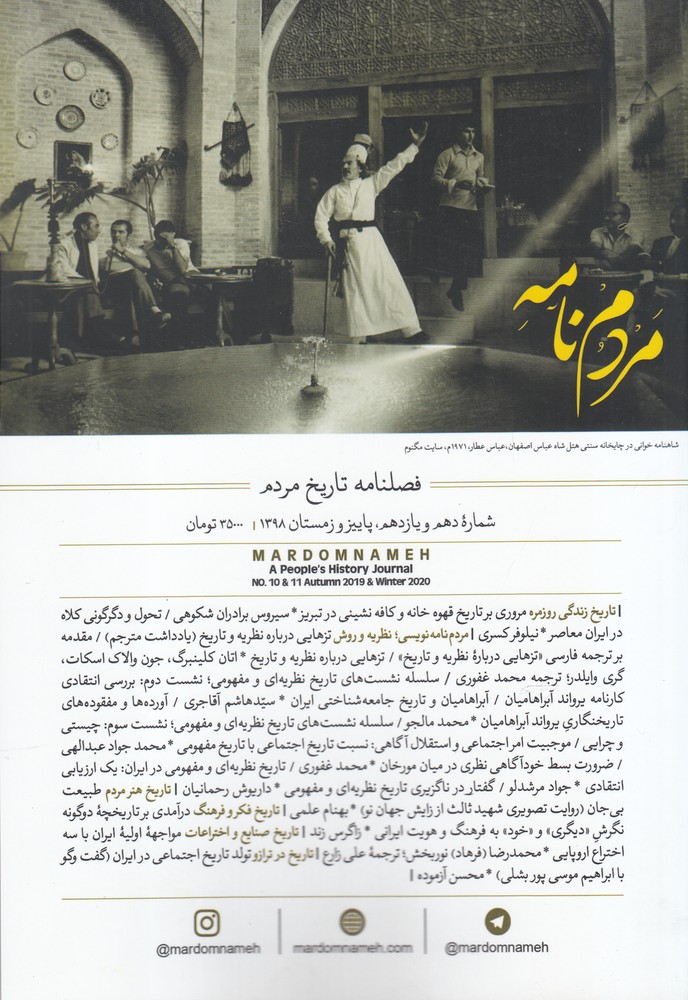 مردم نامه
شاهنامه خوانی در چایخانه سنتی هتل شاه عباس اصفهان، عباس عطار، ۱۹۷۱م، سایت مگنوم
فصلنامه تاریخ مردم
شمارهٔ دهم و یازدهم، پاییز و زمستان ۱۳۹۸ | ۳۵۰۰۰ تومان
MARDOMNAMEH
A People's History Journal
NO. 10 & 11 Autumn 2019 & Winter 2020
| تاریخ زندگی روزمره مروری بر تاریخ قهوه خانه و کافه نشینی در تبریز * سیروس برادران شکوهی / تحول و دگرگونی کلاه
در ایران معاصر * نیلوفر کسری | مردم‌نامه‌نویسی؛ نظریه و روش تزهایی درباره نظریه و تاریخ (یادداشت مترجم) / مقدمه
بر ترجمه فارسی «تزهایی دربارهٔ نظریه و تاریخ» / تزهایی درباره نظریه و تاریخ * اتان کلینبرگ، جون والاک اسکات،
گری وایلدر؛ ترجمه محمد غفوری / سلسله نشست‌های تاریخ نظریه‌ای و مفهومی؛ نشست دوم: بررسی انتقادی
کارنامه یرواند آبراهامیان / آبراهامیان و تاریخ جامعه‌شناختی ایران * سیّدهاشم آقاجری / آورده‌ها و مفقوده‌های
تاریخنگاریِ یرواند آبراهامیان * محمد مالجو / سلسله نشست‌های تاریخ نظریه‌ای و مفهومی؛ نشست سوم: چیستی
و چرایی / موجبیت امر اجتماعی و استقلال آگاهی: نسبت تاریخ اجتماعی با تاریخ مفهومی * محمد جواد عبدالهی
/ ضرورت بسط خودآگاهی نظری در میان مورخان * محمد غفوری / تاریخ نظریه‌ای و مفهومی در ایران: یک ارزیابی
انتقادی * جواد مرشدلو / گفتار در ناگزیری تاریخ نظریه‌ای و مفهومی * داریوش رحمانیان | تاریخ هنر مردم طبیعت
بی‌جان (روایت تصویری شهید ثالث از زایش جهان نو) * بهنام علمی | تاریخ فکر و فرهنگ درآمدی بر تاریخچهٔ دوگونه
نگرشِ «دیگری» و «خود» به فرهنگ و هویت ایرانی * زاگرس زند | تاریخ صنایع و اختراعات مواجههٔ اولیهٔ ایران با سه
اختراع اروپایی * محمدرضا (فرهاد) نوربخش؛ ترجمهٔ علی زارع | تاریخ در ترازو تولد تاریخ اجتماعی در ایران (گفت وگو
با ابراهیم موسی پور بشلی) * محسن آزموده |
@mardomnameh
mardomnameh.com
@mardomnameh